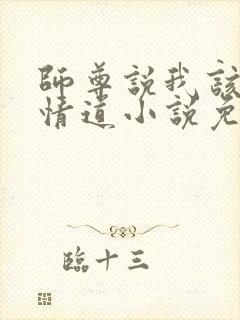 師尊說我該
情道小說免
臨十三